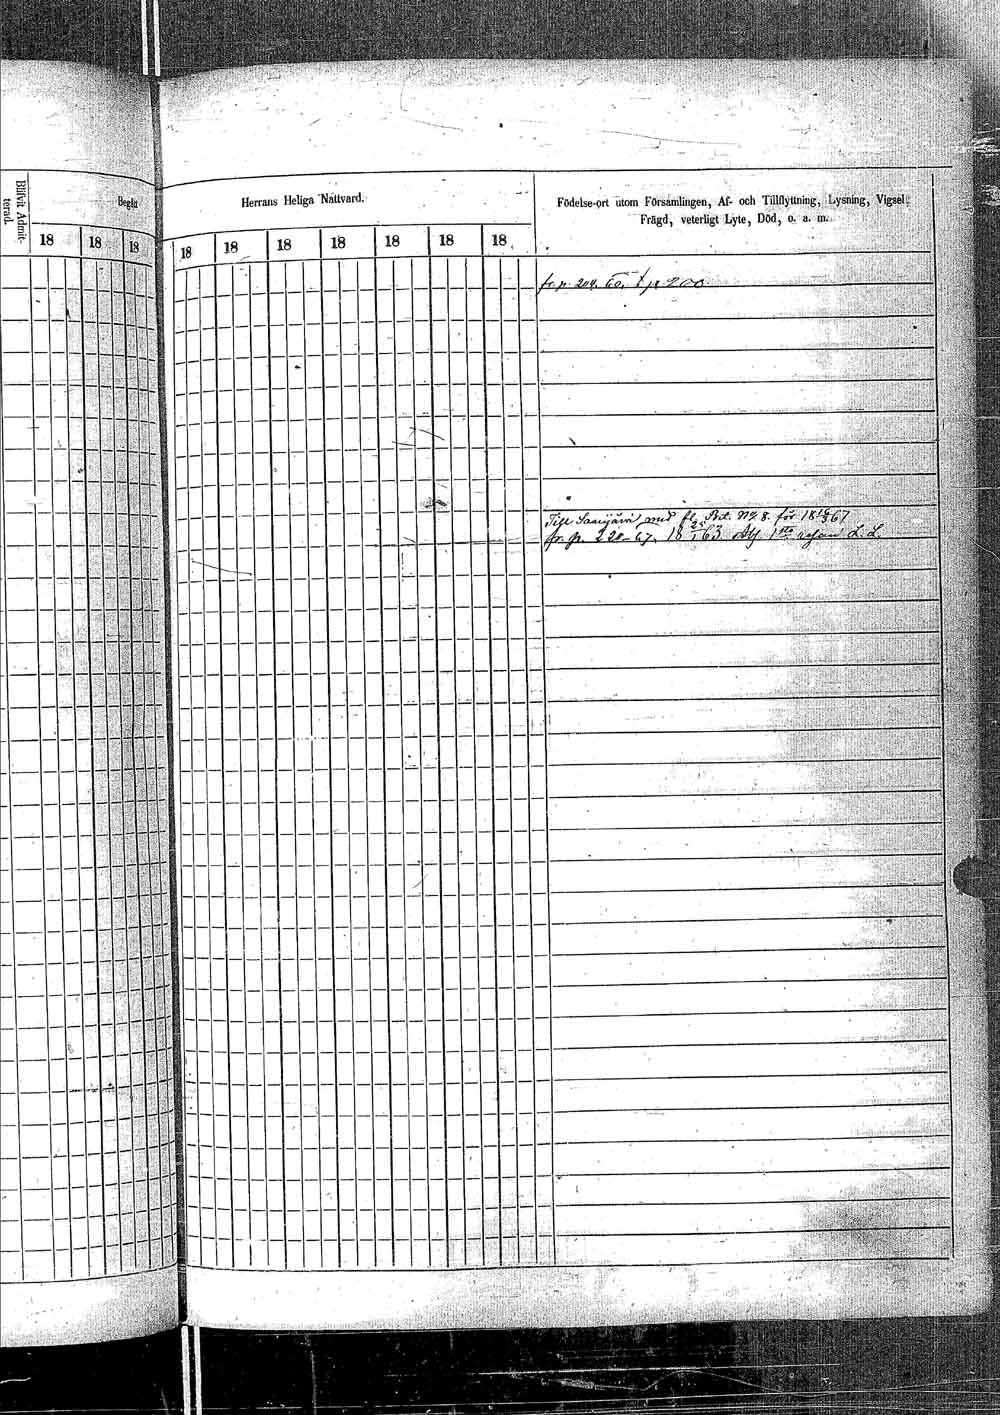 Blifvit Admit-
terad.
Begåt
18 18 18
Herrans Heliga Nattvard.
18 18 18 18 18 18 18
Födelse-ort utom Församlingen, Af- och Tillflyttning, Lysning, Vigsel
Frägd, veterligt Lyte, Död, o. a. m.
fr. p. 204. 60. t p 200.
Till Saarijärvi med fl. Bet. No 8. för 18 67
fr. p. 228-67. 18 63 1sta L. L.